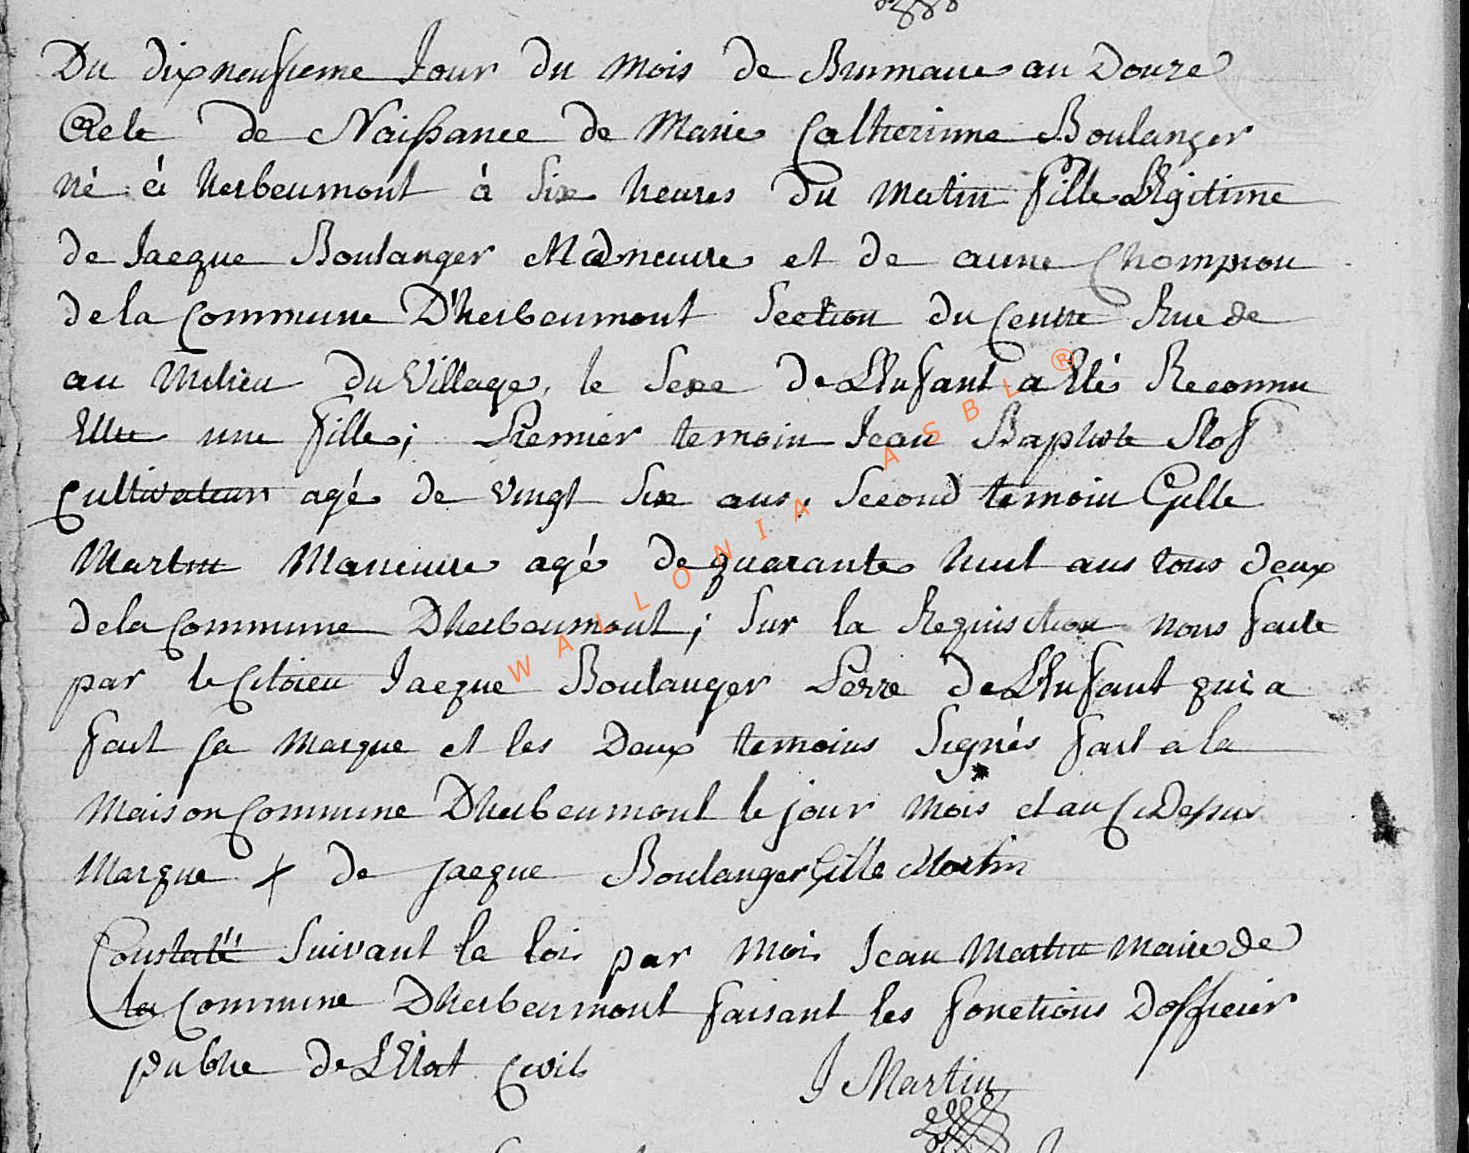 Du dixneufieme Jour du mois de Brumaire an Douze
Acte de Naissance de Marie Catherinne Boulanger
né à herbeumont à Six heures du matin fille Légitime
de Jacque Boulanger Maneuvre et de anne Champion
de la Commune D'herbeumont Section du Centre Rue de
au Milieu du Village, le Sexe de L'Enfant a Eté Reconnu
Etre une fille; Premier temoin Jean Baptiste
Cultivateur agé de vingt Six ans, Second temoin Gille
Martin Maneuvre agé de quarante huit ans tous deux
de la Commune Dherbeumont; Sur la Requisition nous faite
par le Citoien Jacque Boulanger Perre de L'Enfant qui a
fait sa marque et les Deux temoins Signés fait a la
maison Commune Dherbeumont le jour mois et an Ci Dessus
Marque + de jacque Boulanger Gille Martin
Constaté Suivant la loi par moi Jean Martin maire de
la Commune Dherbeumont faisant les fonctions Dofficier
public de L'Etat Civil
J Martin
WALLONIA ASBL ®